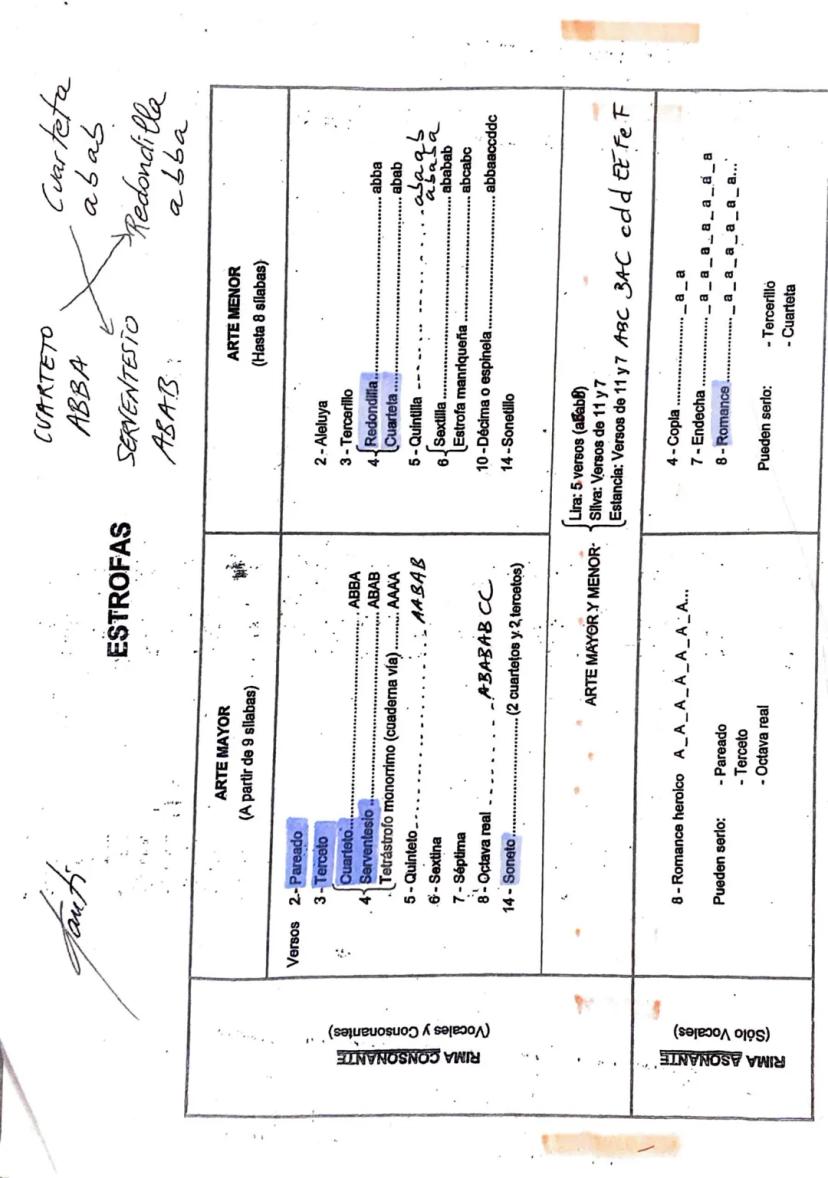 Santi
ESTROFAS
CUARTETO
ABBA
SERVENTESIO
ABAB
Cuarteta
abab
Redondilla
abba
ARTE MAYOR
(A partir de 9 sílabas)
ARTE MENOR
(Hasta 8 sílabas)
RIMA CONSONANTE
(Vocales y Consonantes)
Versos 2.- Pareado
3 - Terceto
4 Cuarteto ABBA
Serventesio ABAB
Tetrástrofo monorrimo (cuaderna vía) AAAA
5 - Quinteto AABAB
6 - Sextina
7 - Séptima
8 - Octava real ABABAB CC
14 - Soneto (2 cuartetos y 2 tercetos)
2 - Aleluya
3 - Tercerillo
4 - Redondilla abba
Cuarteta abab
5 - Quintilla abaab
ababa
6 Sextilla ababab
Estrofa manriqueña abcabc
10 - Décima o espinela abbaaccddc
14 - Sonetillo
ARTE MAYOR Y MENOR
Lira: 5 versos
Silva: Versos de 11 y 7
Estancia: Versos de 11 y 7 ABC BAC cdd EE Fe F
RIMA ASONANTE
(Sólo Vocales)
8 - Romance heroico A_A_A_A_A_A_A...
Pueden serlo: - Pareado
- Terceto
- Octava real
4 - Copla _a_a
7 - Endecha _a_a_a_a_a_a
8 - Romance _a_a_a_a_a_a...
Pueden serlo: - Tercerillo
- Cuarteta